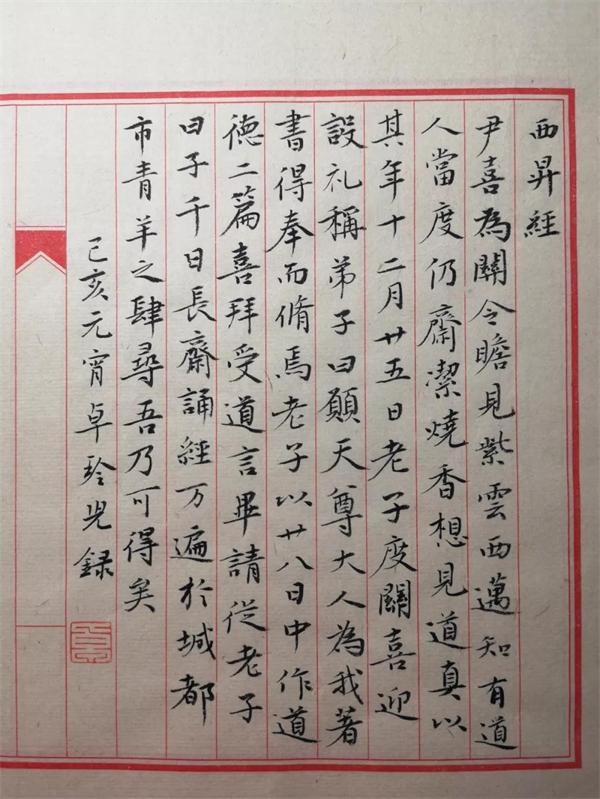 西昇經
尹喜為關令瞻見紫雲西邁知有道
人當度仍齋潔燒香想見道真以
其年十二月廿五日老子度關喜迎
設礼稱弟子曰願天尊大人為我著
書得奉而脩焉老子以廿八日中作道
德二篇喜拜受道言畢請從老子
曰子千日長齋誦經万遍於城都
市青羊之肆尋吾乃可得矣
己亥元宵卓玲光録